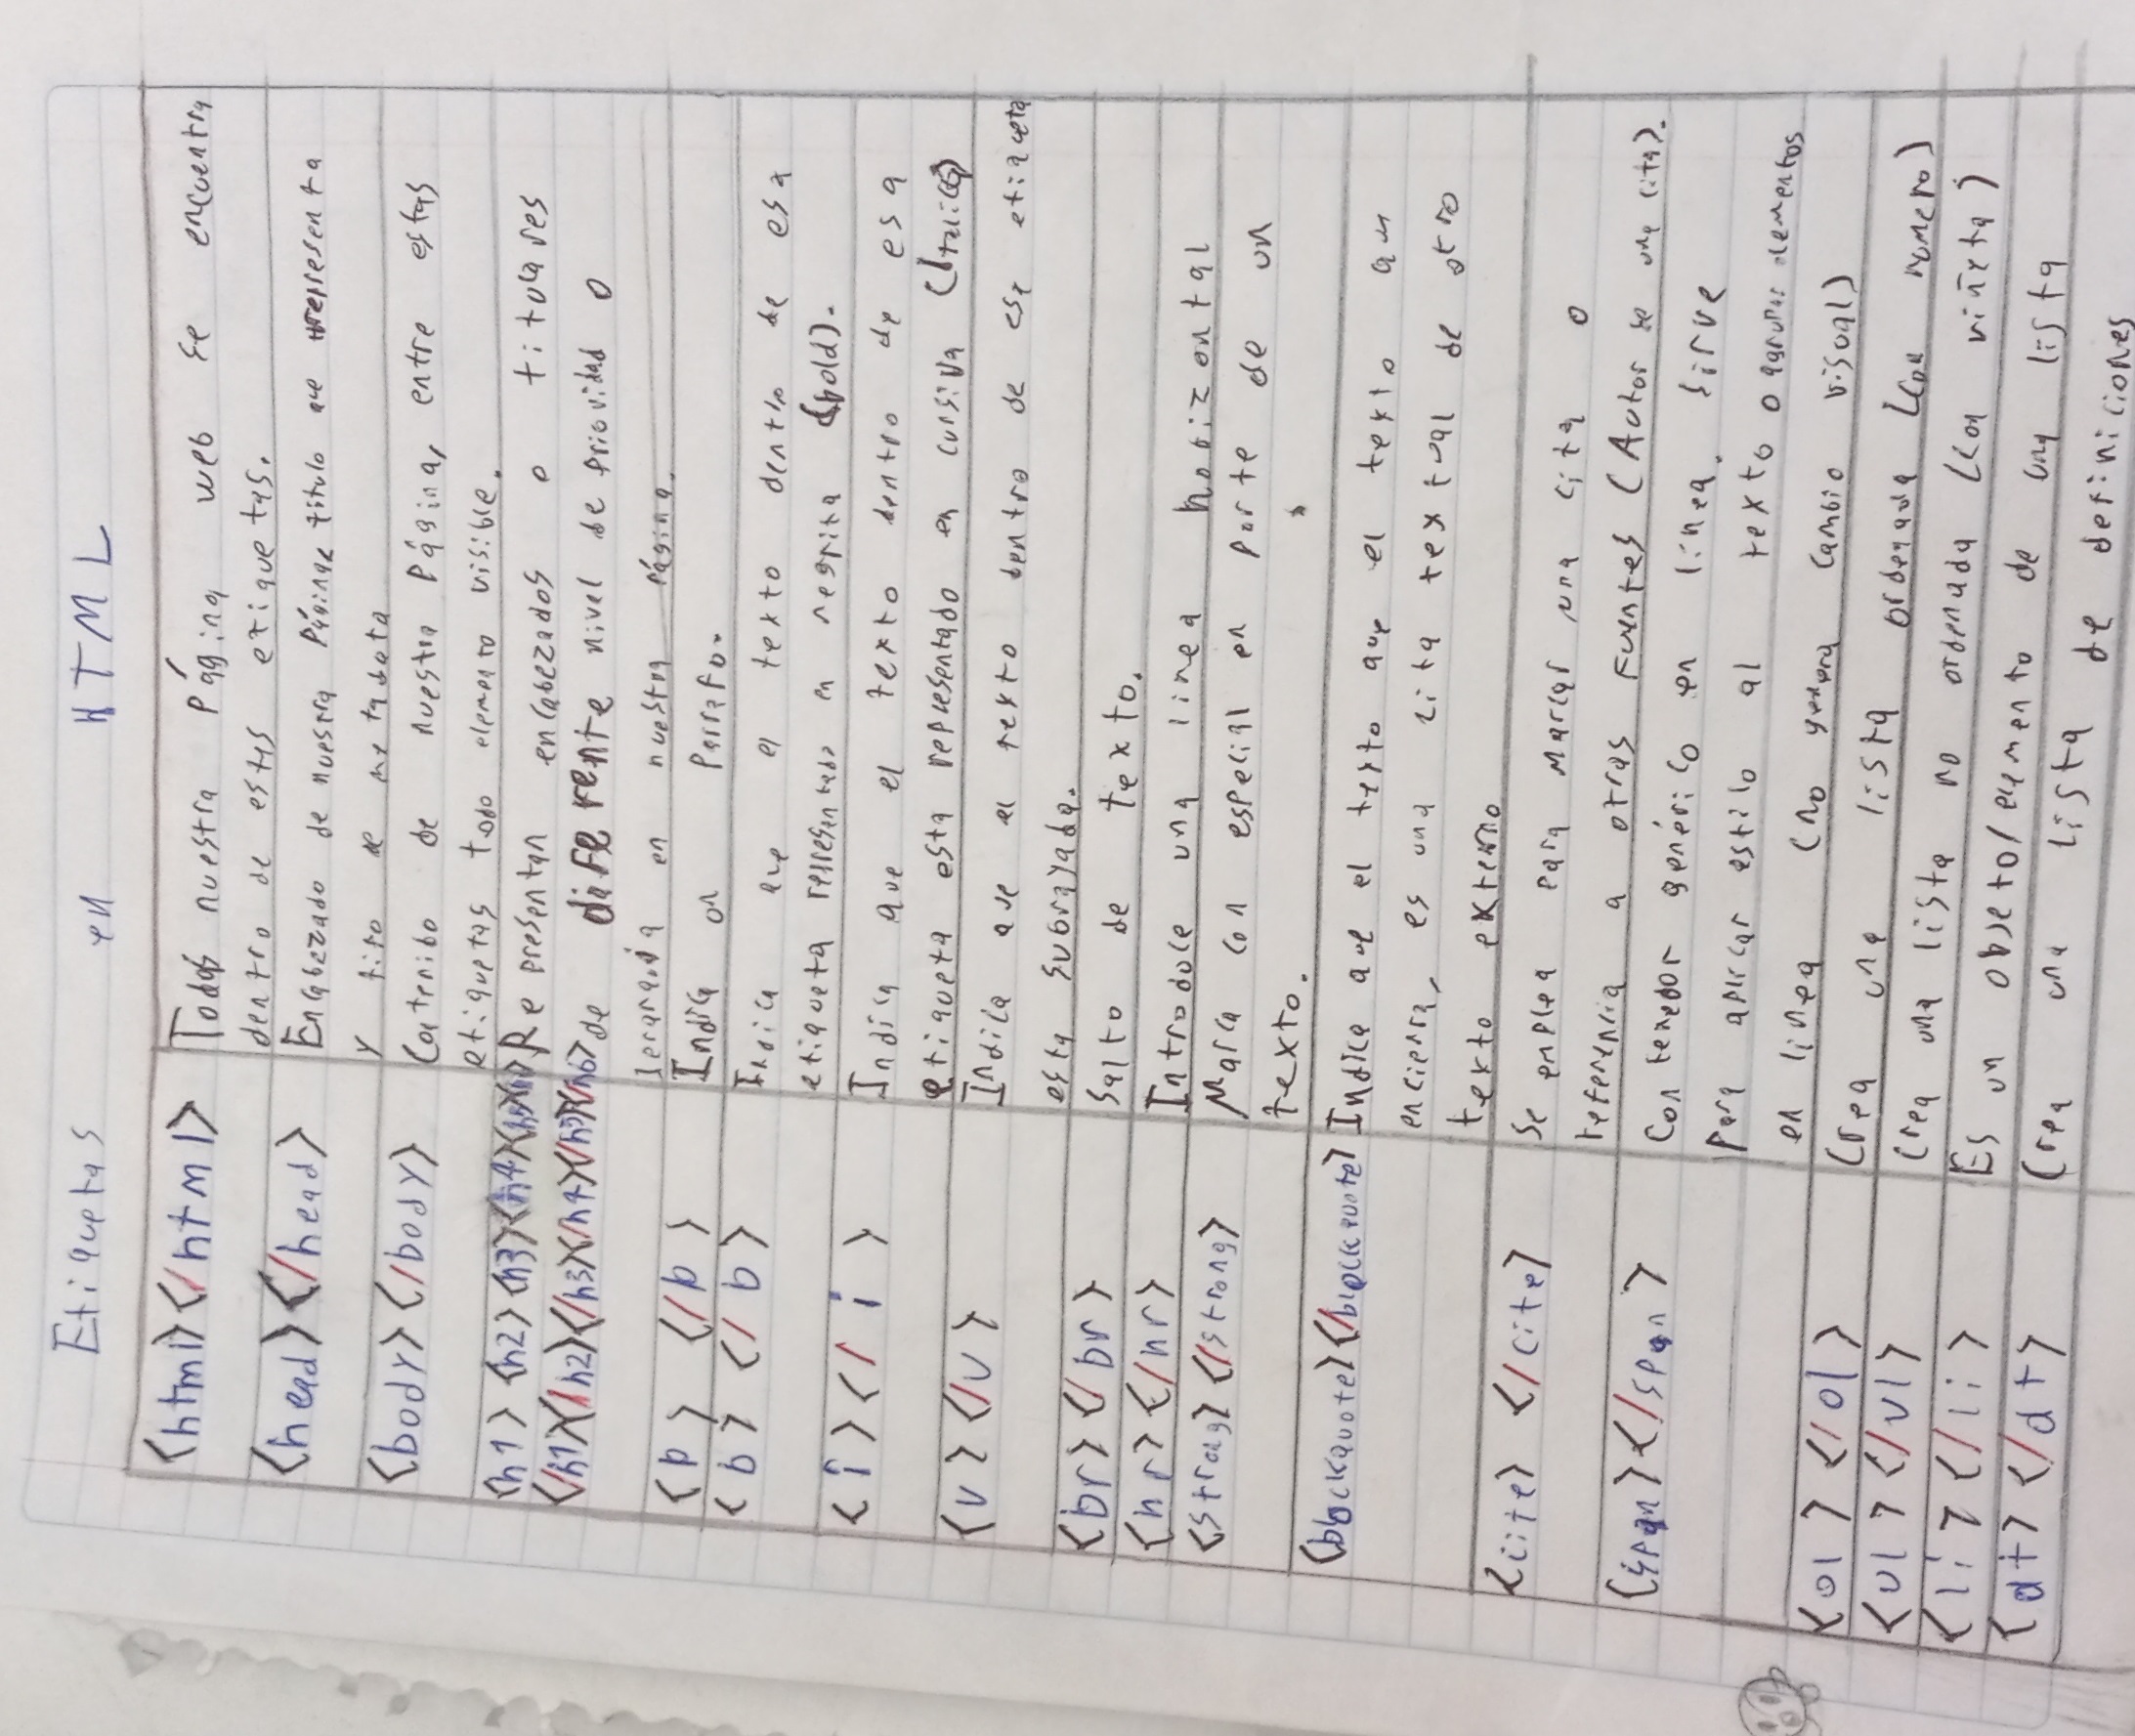 Etiquetas en HTML
<html></html> Todos nuestra Página web se encuentra
dentro de estas etiquetas.
<head></head> Encabezado de nuestra Página titulo que representa
y tipo de metadata
<body></body> Contenido de nuestra Página, entre estas
etiquetas todo elemento visible.
<h1> <h2> <h3><h4><h5><h6> Representan encabezados o titulares
</h1></h2></h3></h4></h5></h6> de diferente nivel de prioridad o
en nuestra página.
<p> </p> Indica un Parrafo.
<b> </b> Indica que el texto dentro de esa
etiqueta representado en negrita (bold).
<i></i> Indica que el texto dentro de esa
etiqueta esta representado en cursiva (Italica)
<u></u> Indica que el texto dentro de esa etiqueta
esta subrayada.
<br></br> Salto de texto.
<hr></hr> Introduce una linea horizontal
<strong></strong> Marca con especial en parte de un
texto.
<blockquote></blockquote> Indica que el texto que el texto que
encierra, es una cita textual de otro
texto externo
<cite> </cite> Se emplea para marcar una cita o
referencia a otras Fuentes (Autor de una cita).
<span></span> Contenedor genérico en linea. Sirve
para aplicar estilo al texto o agrupar elementos
en linea (no genera cambio visual)
<ol></ol> Crea una lista ordenada (Con numero)
<ul></ul> Crea una lista no ordenada (Con viñeta)
<li></li> Es un objeto/elemento de una lista
<dt></dt> Crea una lista de definiciones